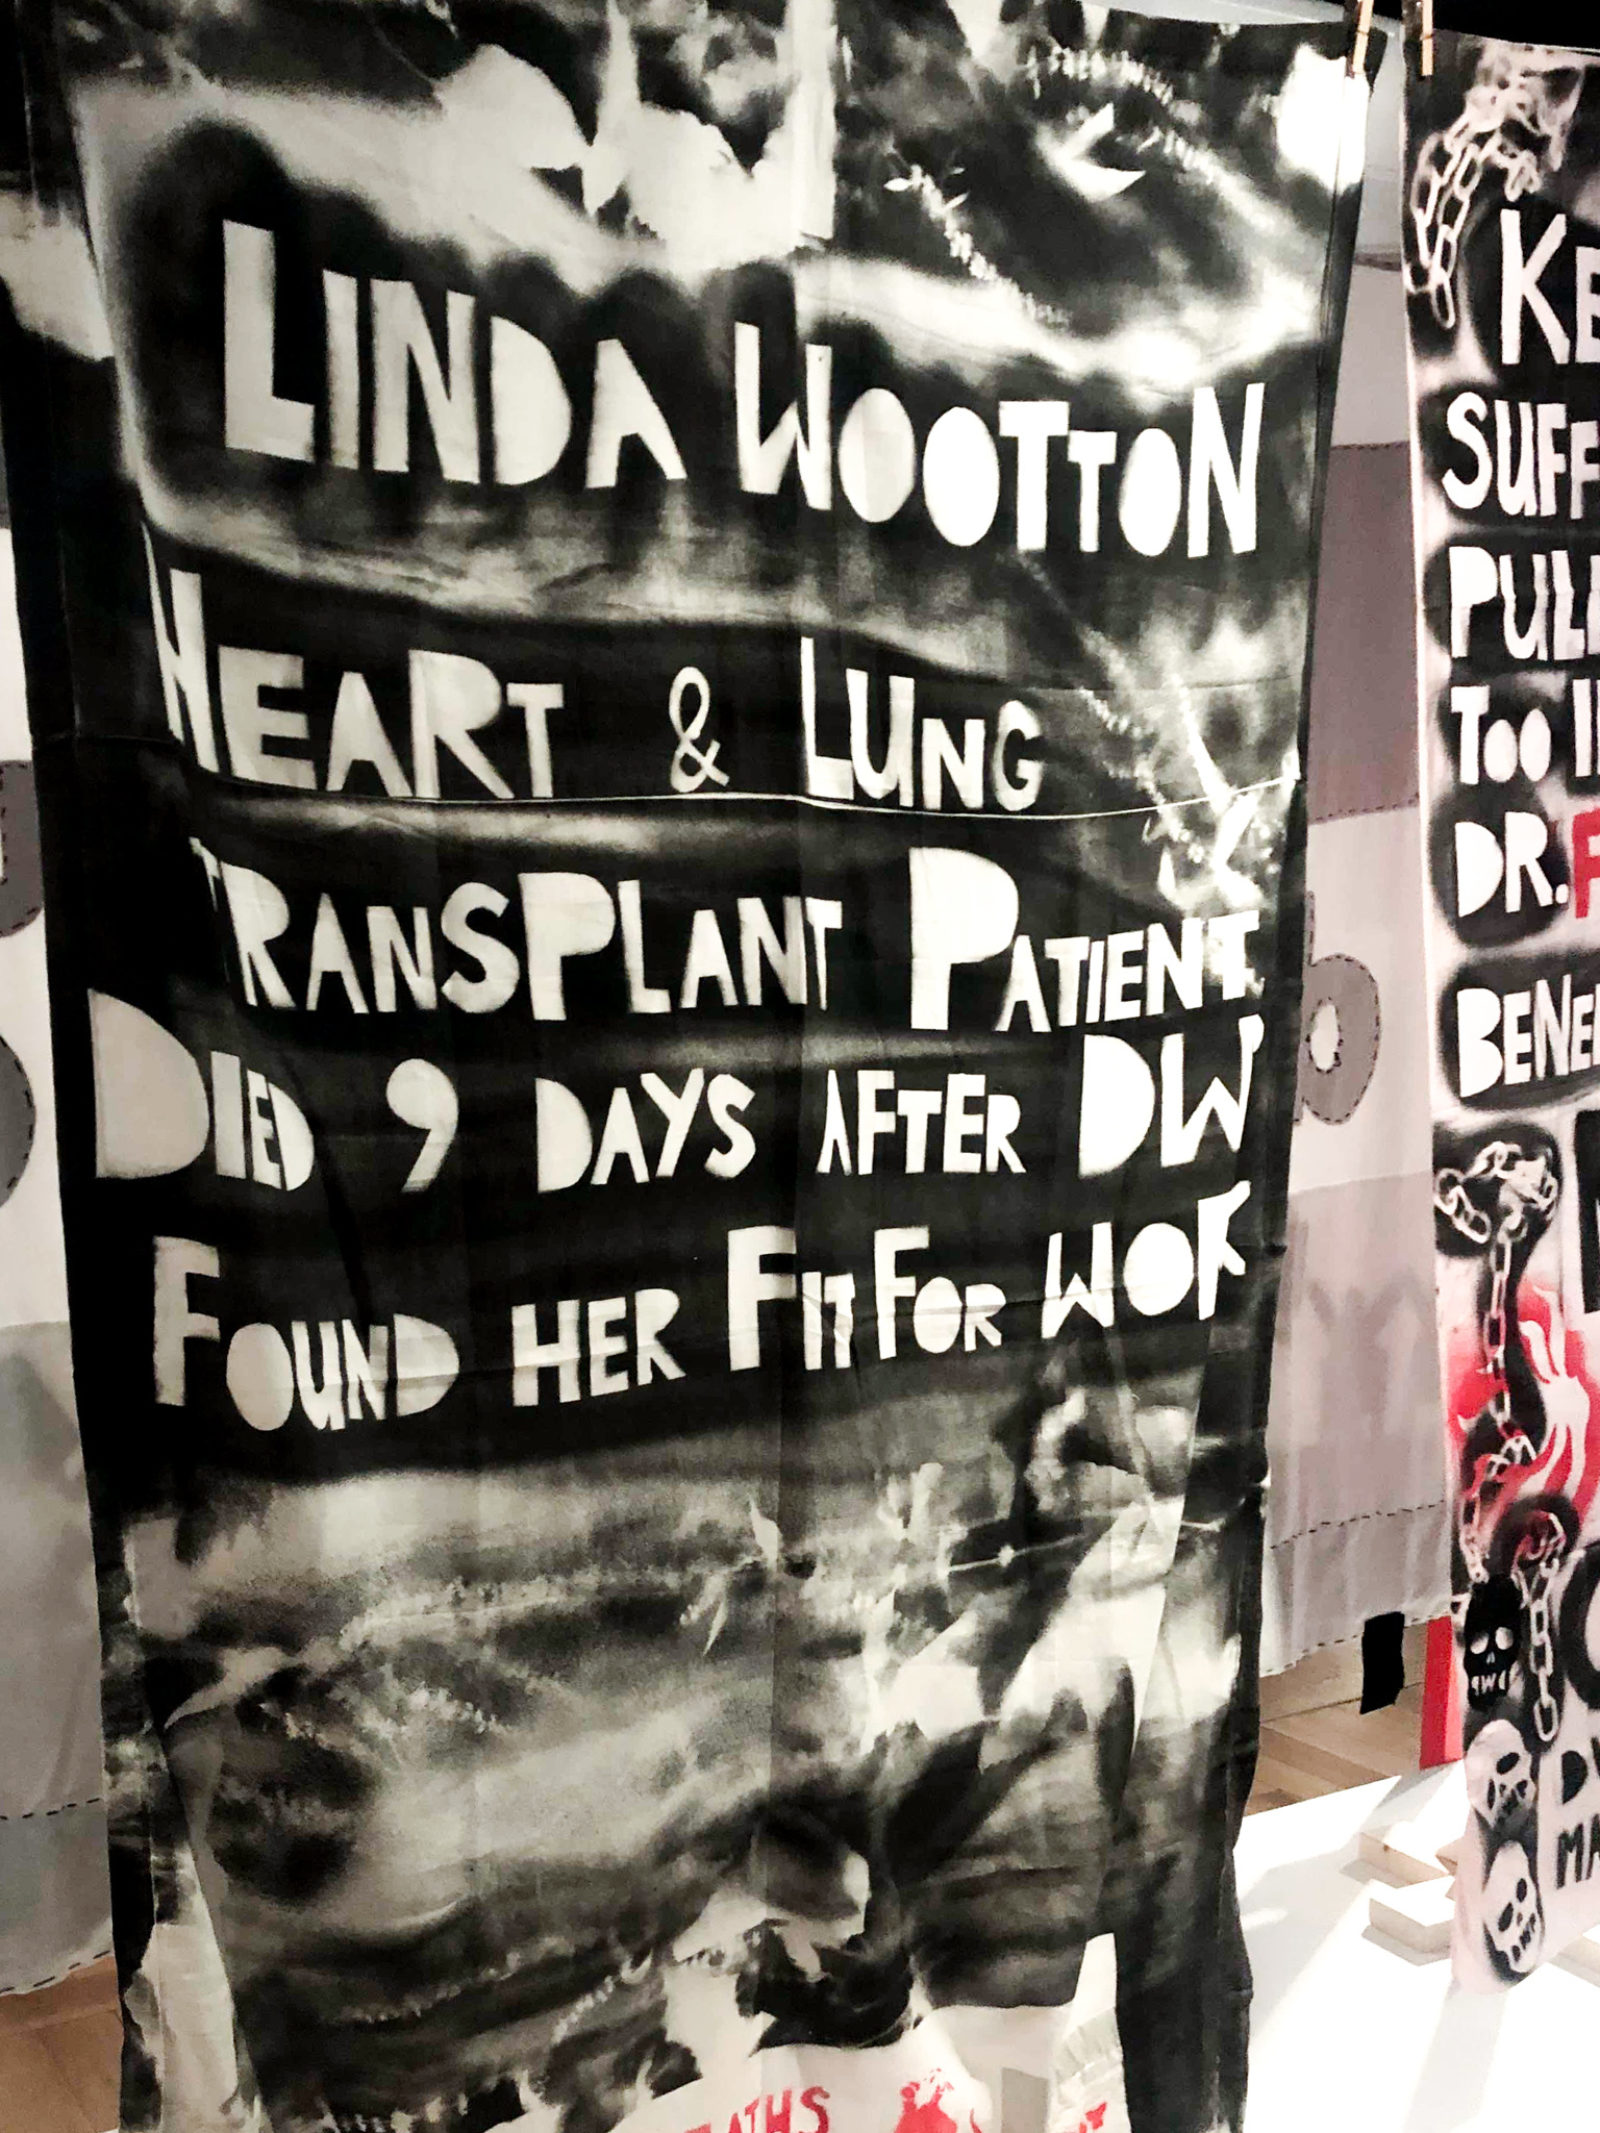 LINDA WOOTTON
HEART & LUNG
TRANSPLANT PATIENT.
DIED 9 DAYS AFTER DW
FOUND HER FIT FOR WOR
KE
SUFF
PUL
TOO
DR.
BENE
DWP